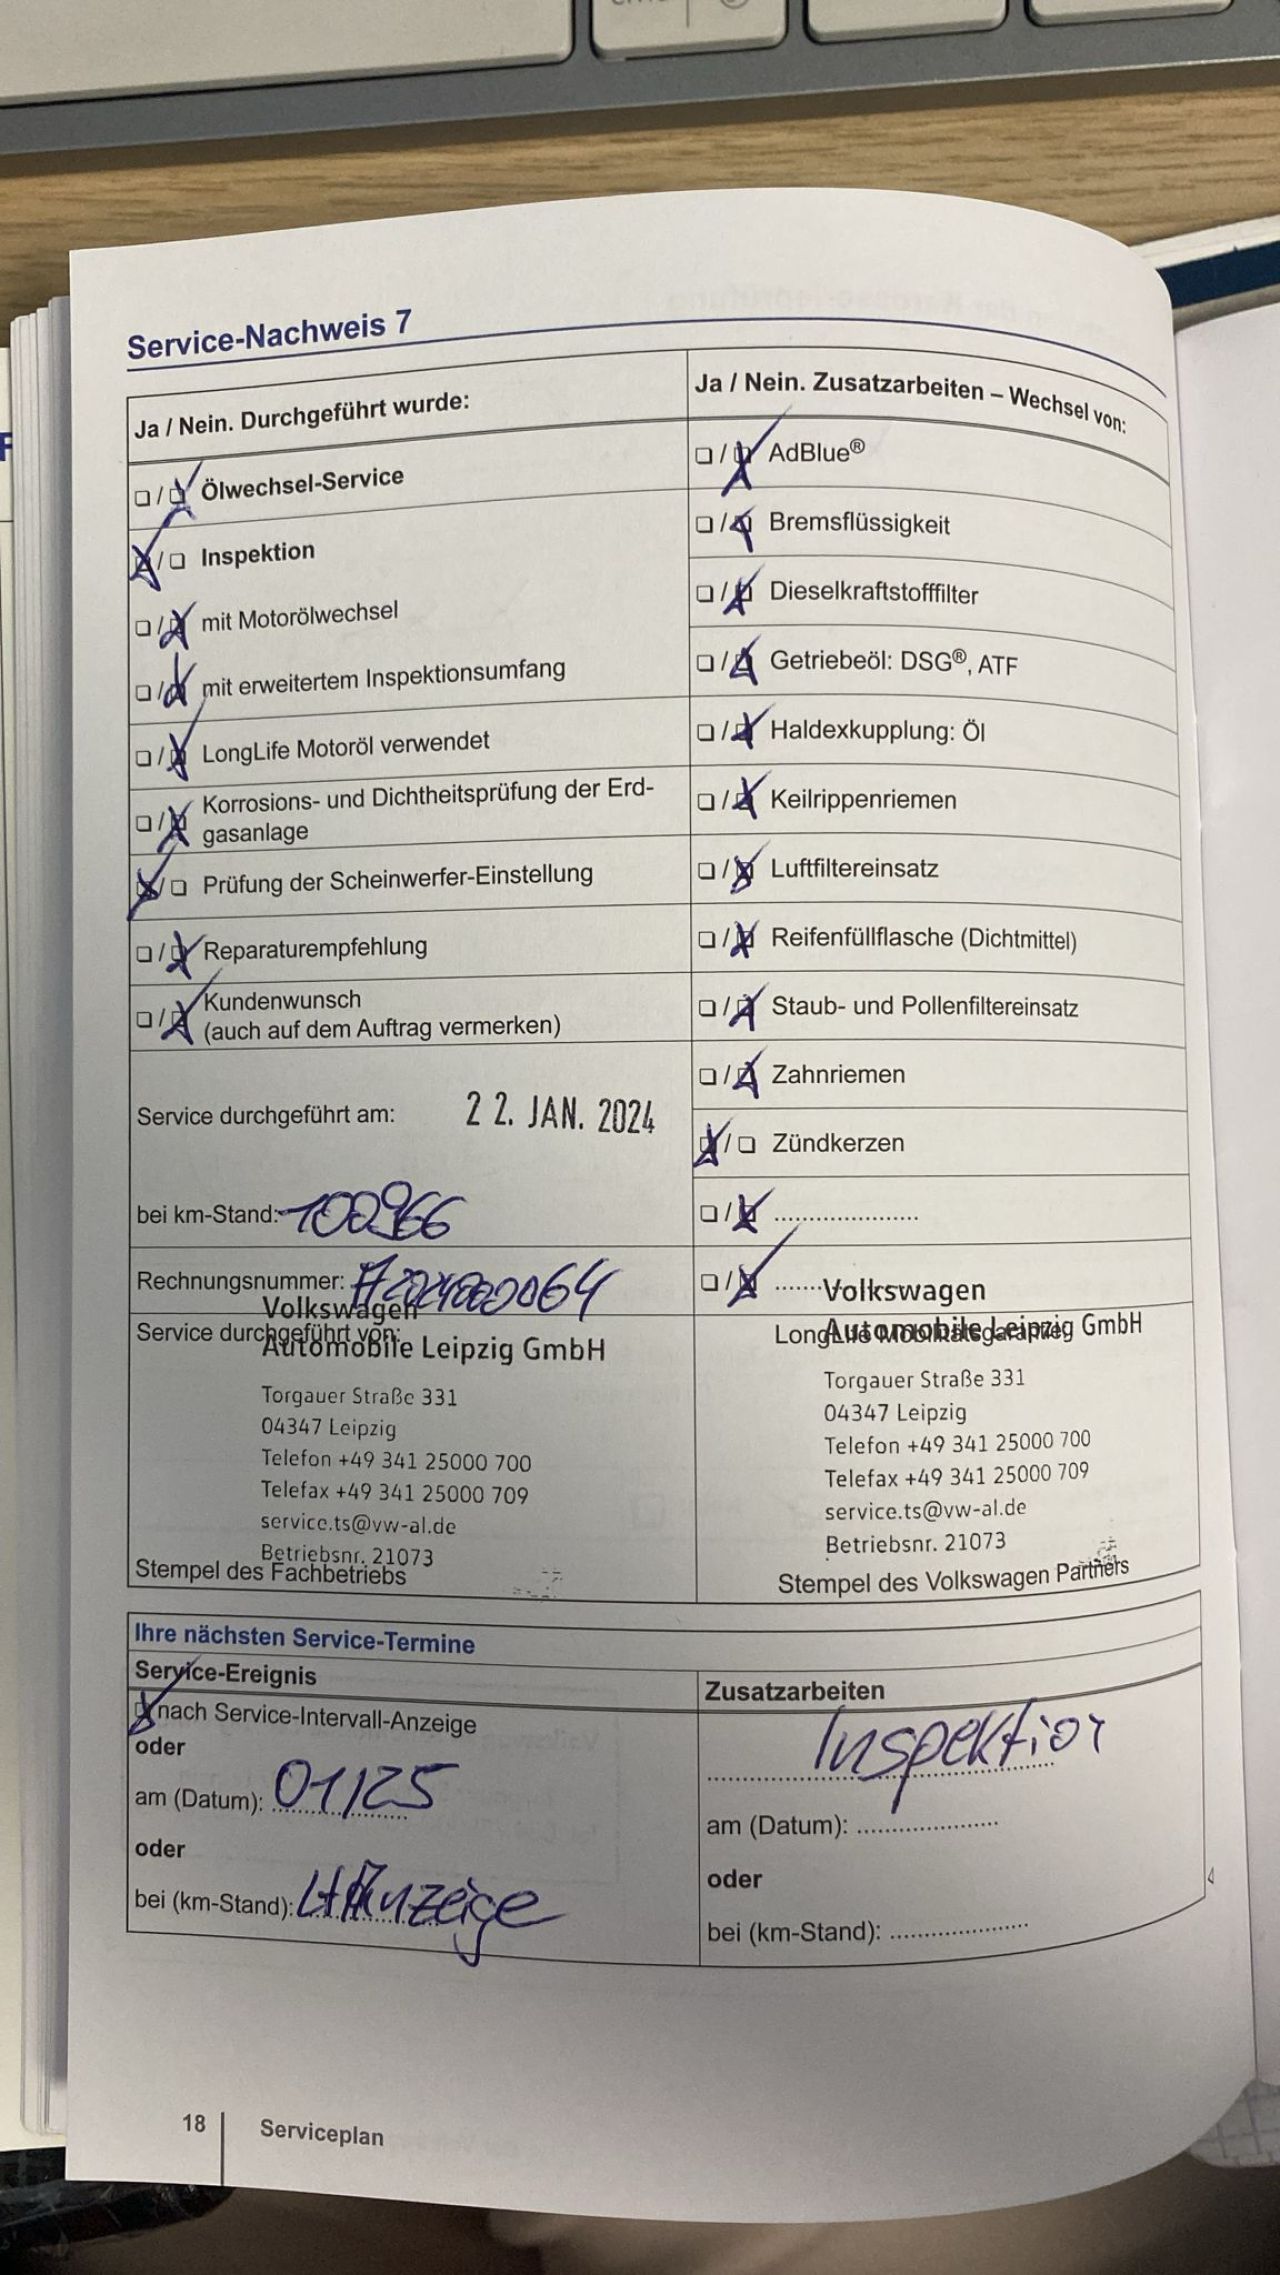 Service-Nachweis 7
Ja / Nein. Durchgeführt wurde:
❏ / ☒ Ölwechsel-Service
☒ / ❏ Inspektion
❏ / ☒ mit Motorölwechsel
❏ / ☒ mit erweitertem Inspektionsumfang
❏ / ☒ LongLife Motoröl verwendet
❏ / ☒ Korrosions- und Dichtheitsprüfung der Erd-
gasanlage
☒ / ❏ Prüfung der Scheinwerfer-Einstellung
❏ / ☒ Reparaturempfehlung
❏ / ☒ Kundenwunsch
(auch auf dem Auftrag vermerken)
Service durchgeführt am: 22. JAN. 2024
bei km-Stand: 100966
Rechnungsnummer:
Volkswagen
Service durchgeführt von:
Automobile Leipzig GmbH
Torgauer Straße 331
04347 Leipzig
Telefon +49 341 25000 700
Telefax +49 341 25000 709
service.ts@vw-al.de
Betriebsnr. 21073
Stempel des Fachbetriebs
Ja / Nein. Zusatzarbeiten – Wechsel von:
❏ / ☒ AdBlue®
❏ / ☒ Bremsflüssigkeit
❏ / ☒ Dieselkraftstofffilter
❏ / ☒ Getriebeöl: DSG®, ATF
❏ / ☒ Haldexkupplung: Öl
❏ / ☒ Keilrippenriemen
❏ / ☒ Luftfiltereinsatz
❏ / ☒ Reifenfüllflasche (Dichtmittel)
❏ / ☒ Staub- und Pollenfiltereinsatz
❏ / ☒ Zahnriemen
☒ / ❏ Zündkerzen
❏ / ☒ .....................
❏ / ☒ .......Volkswagen
LongLife Mobilitätsgarantie
Automobile Leipzig GmbH
Torgauer Straße 331
04347 Leipzig
Telefon +49 341 25000 700
Telefax +49 341 25000 709
service.ts@vw-al.de
Betriebsnr. 21073
Stempel des Volkswagen Partners
Ihre nächsten Service-Termine
Service-Ereignis
☒ nach Service-Intervall-Anzeige
oder
am (Datum): 01/25
oder
bei (km-Stand): Anzeige
Zusatzarbeiten
Inspektion
am (Datum): .....................
oder
bei (km-Stand): .....................
18
Serviceplan